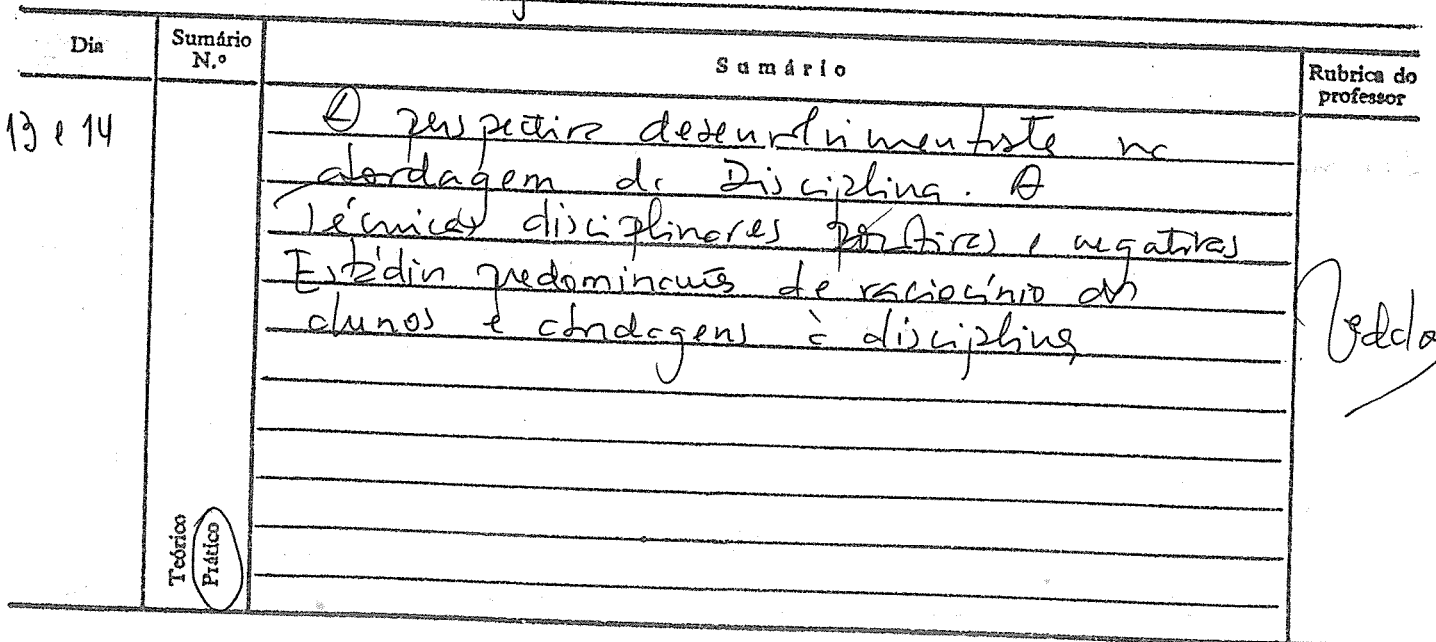 Dia
Sumário N.º
Sumário
Rubrica do professor
13 e 14
A perspectiva desenvolvimentista na
abordagem da Disciplina. A
Técnicas disciplinares positivas e negativas
Estádios predominantes de raciocínio dos
alunos e abordagens à disciplina
Teórico
Prático